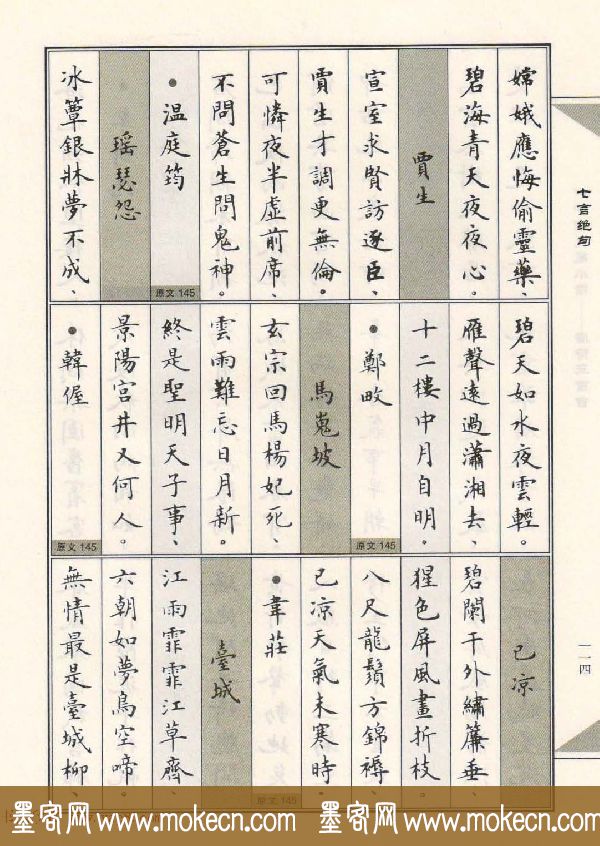 嫦娥應悔偷靈藥、
碧海青天夜夜心。
賈生
宣室求賢訪逐臣、
賈生才調更無倫。
可憐夜半虛前席、
不問蒼生問鬼神。
•溫庭筠
原文 145
瑶瑟怨
冰簟銀牀夢不成、
碧天如水夜雲輕。
雁聲遠過瀟湘去、
十二樓中月自明。
•鄭畋
原文 145
馬嵬坡
玄宗回馬楊妃死、
雲雨難忘日月新。
終是聖明天子事、
景陽宮井又何人。
•韓偓
原文 145
已凉
碧闌干外繡簾垂、
猩色屏風畫折枝。
八尺龍鬚方錦褥、
已凉天氣未寒時。
•韋莊
原文 145
臺城
江雨霏霏江草齊、
六朝如夢鳥空啼。
無情最是臺城柳、
七言绝句
一一四
墨客网 www.mokecn.com 墨客网 www.mokecn.com